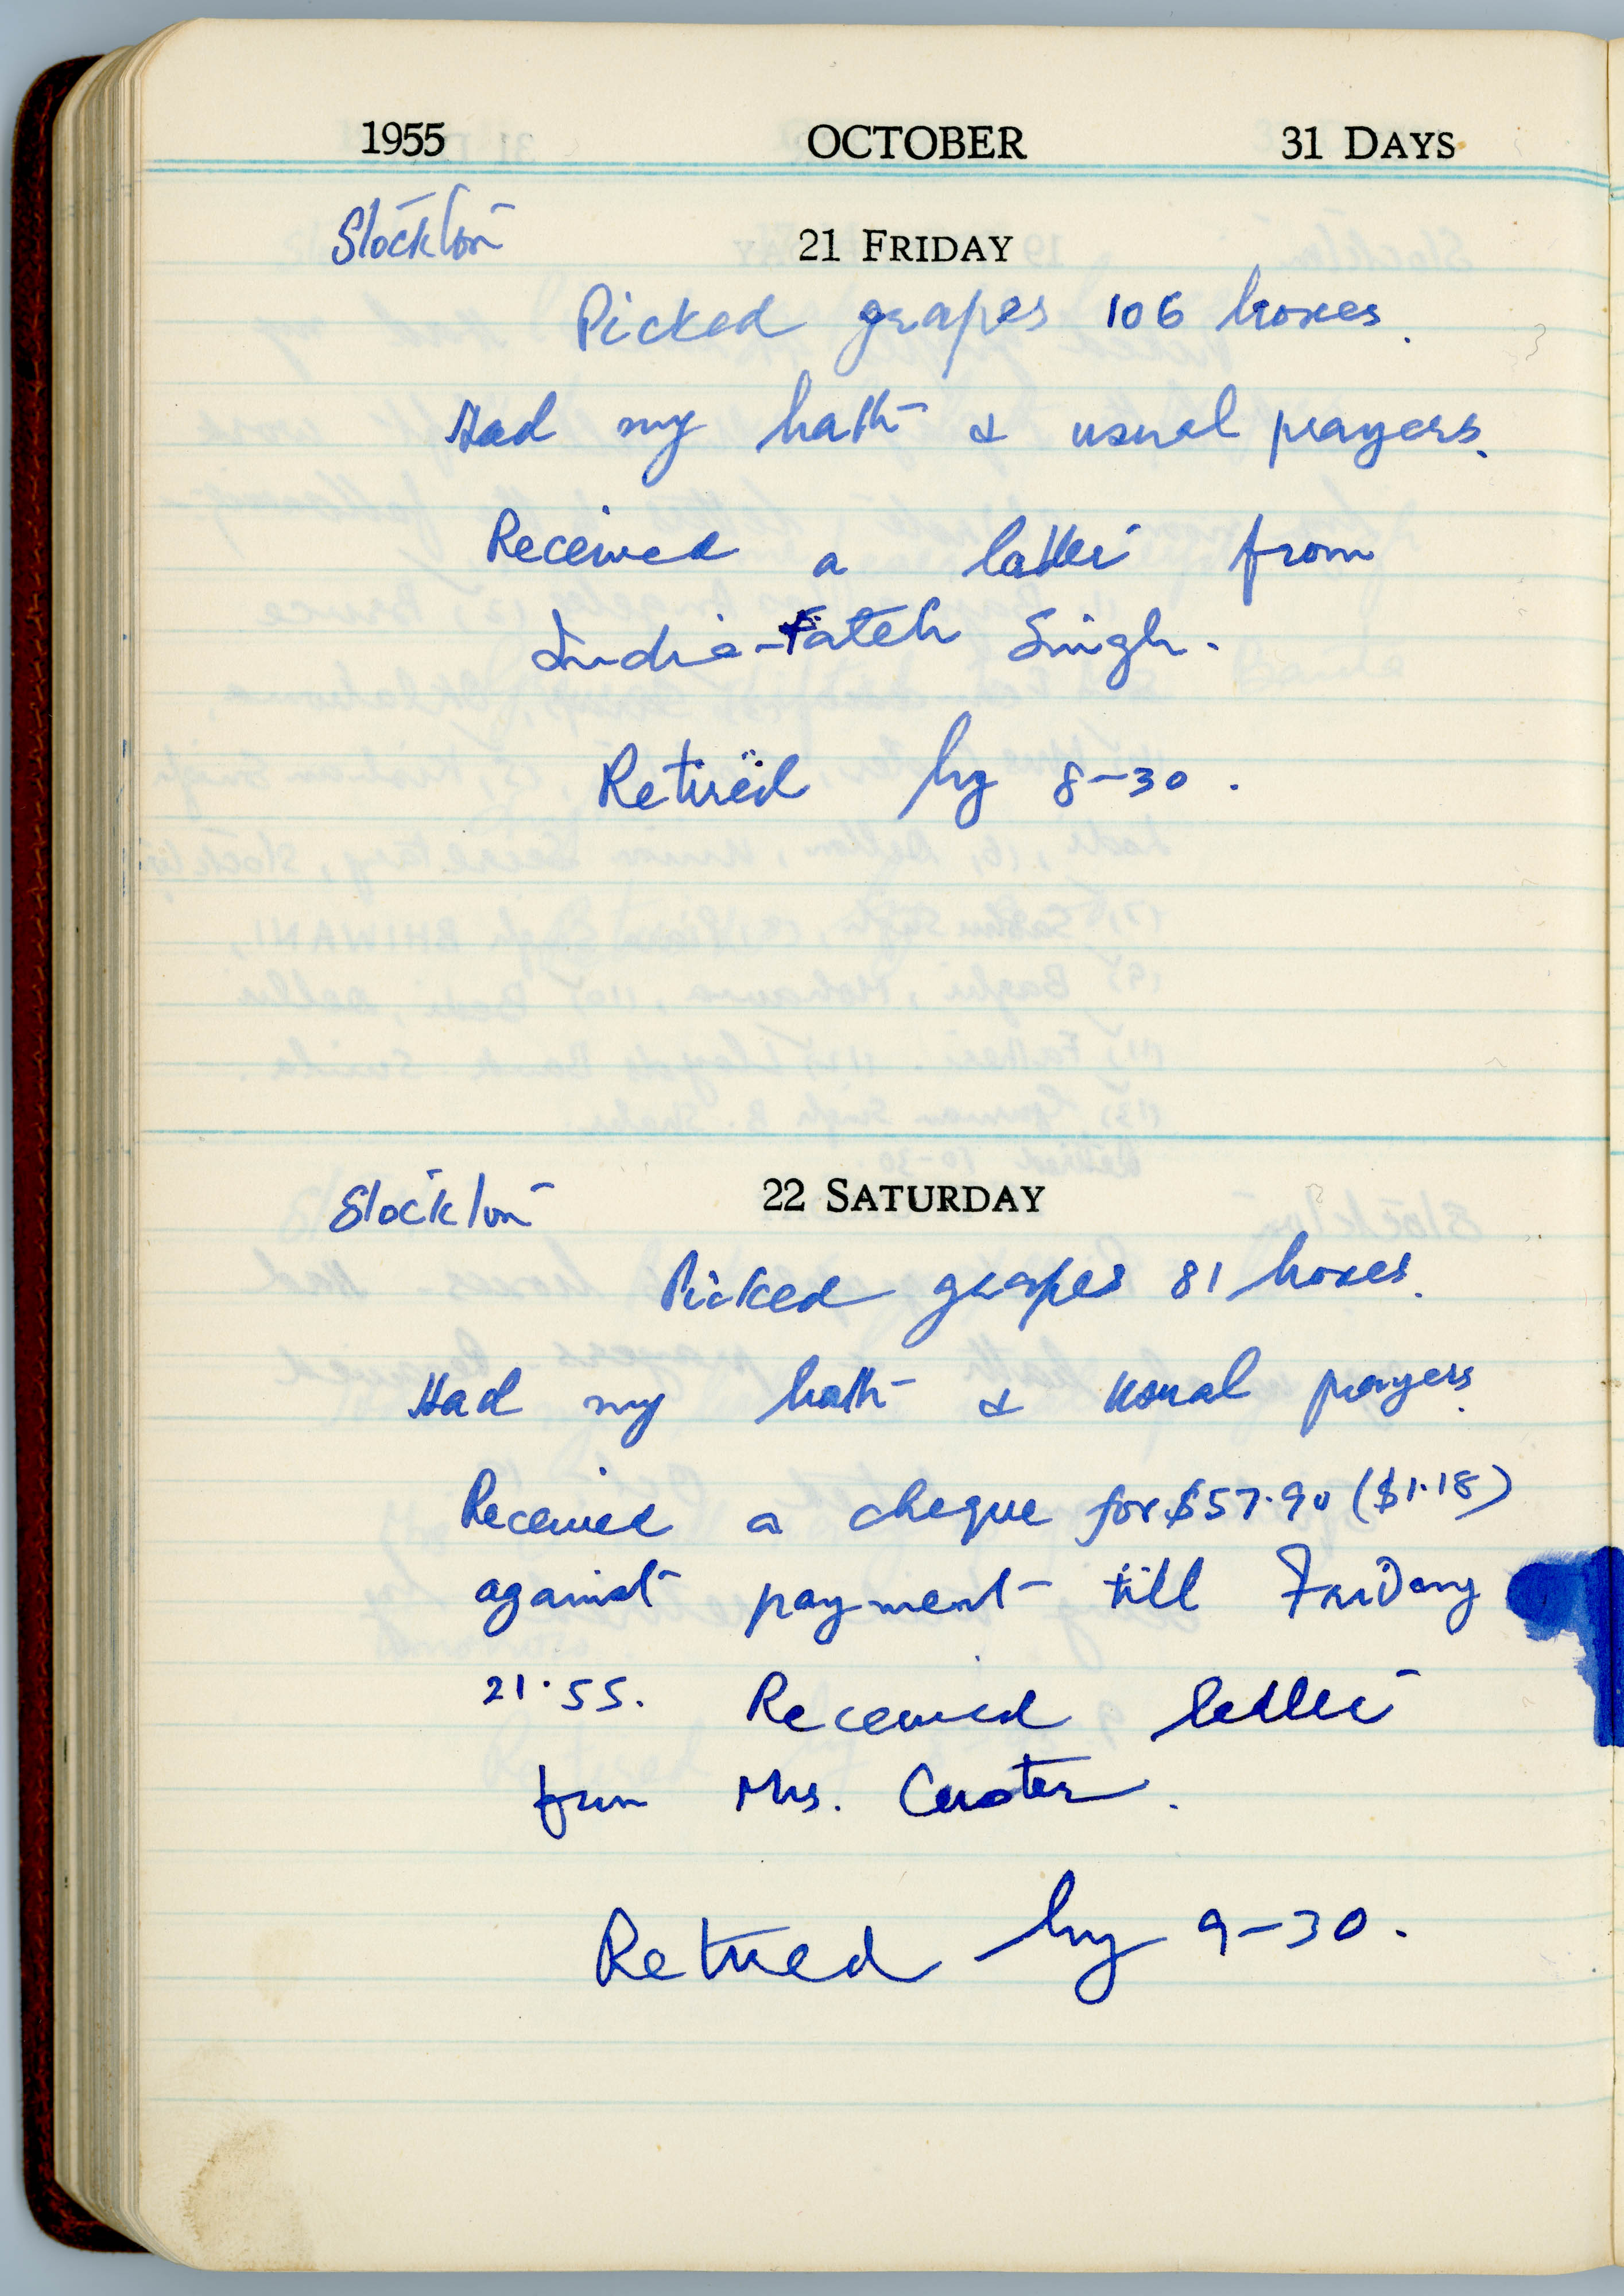 1955 OCTOBER 31 DAYS
Stockton 21 FRIDAY
Picked grapes 106 boxes.
Had my bath & usual prayers.
Received a latter from
India-Fateh Singh.
Retired by 8-30.
Stockton 22 SATURDAY
Picked grapes 81 boxes.
Had my bath & usual prayers.
Received a cheque for $57.90 ($1.18)
against payment till Friday
21.55. Received letter
from Mrs. Custer.
Retired by 9-30.